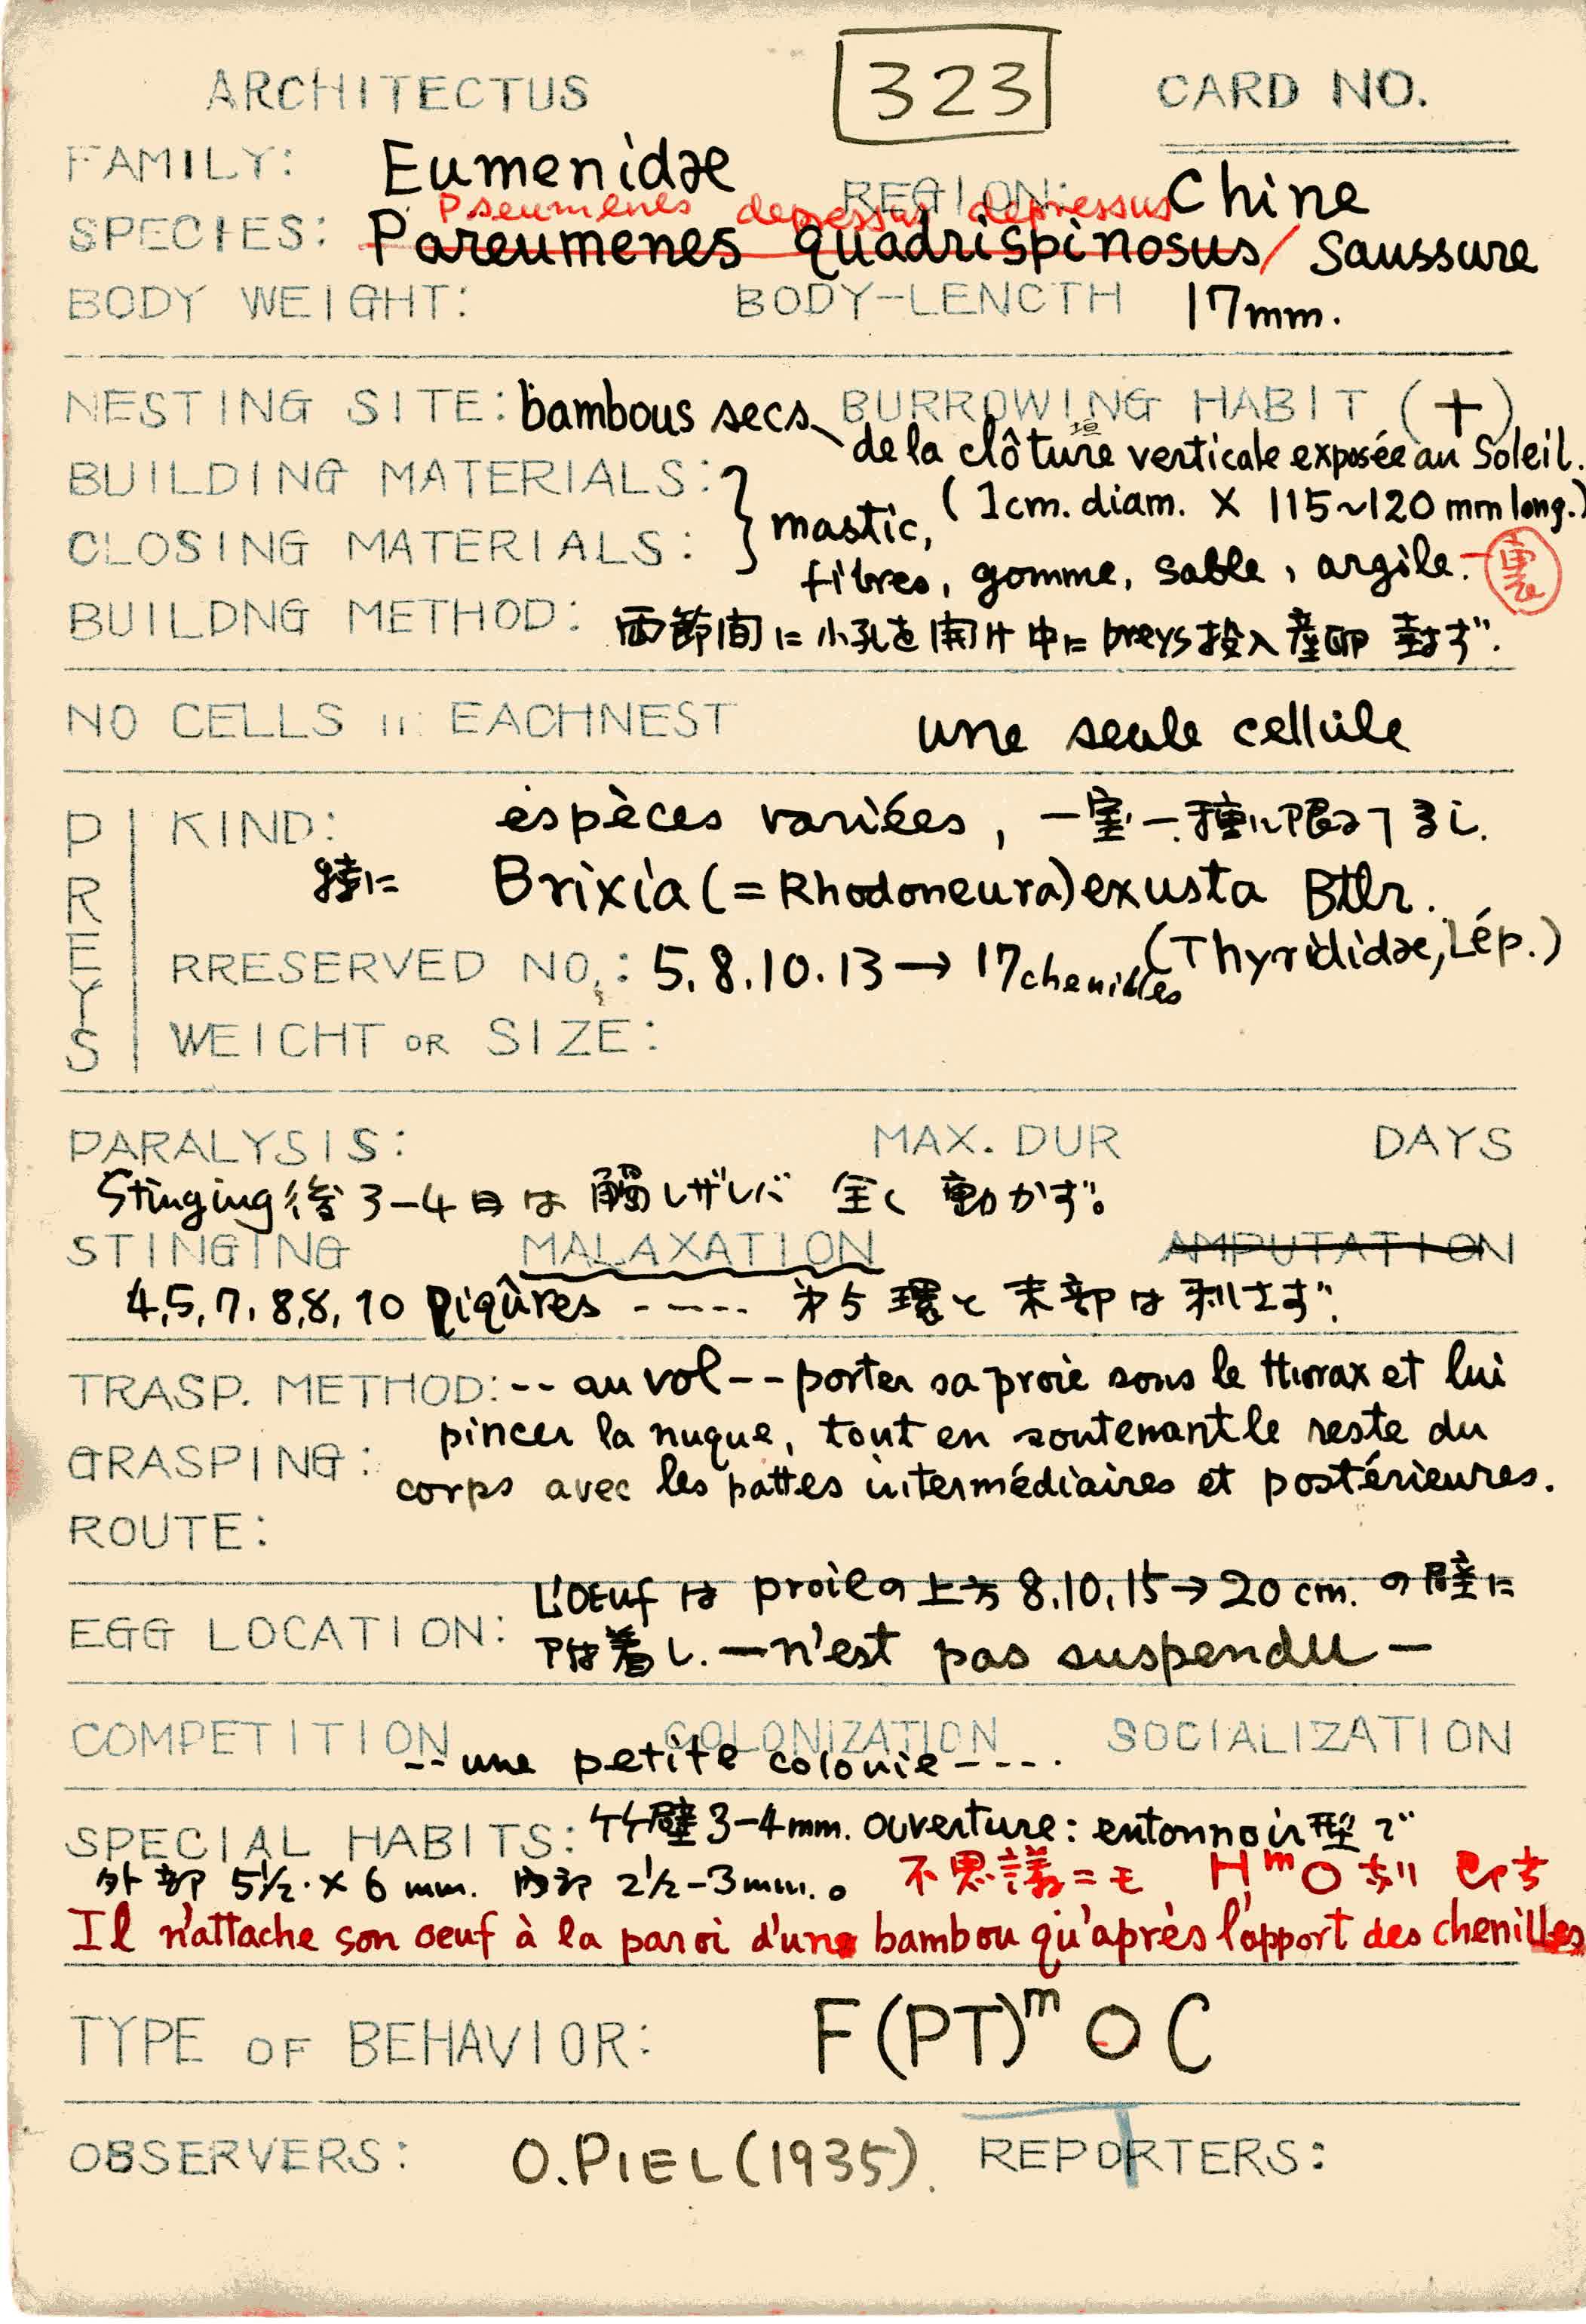 ARCHITECTUS 323 CARD NO.
FAMILY: Eumenidae REGION: Chine
Pseumenes depressus depressus
SPECIES: Pareumenes quadrispinosus/ Saussure
BODY WEIGHT: BODY-LENCTH 17mm.
NESTING SITE: bambous secs BURROWING HABIT (+)
垣
de la clôture verticale exposée au Soleil.
BUILDING MATERIALS: (1cm. diam. × 115~120 mm long.)
CLOSING MATERIALS: } mastic,
fibres, gomme, sable, argile.
BUILDNG METHOD: 両節間に小孔を開け中にpreys投入産卵 封ず.
NO CELLS in EACHNEST une seule cellule
PREYS
KIND: espèces variées, 一室一種に限る
特に Brixia (=Rhodoneura) exusta Btlr.
(Thyrididae, Lép.)
RRESERVED NO.: 5.8.10.13→17chenilles
WEICHT OR SIZE:
PARALYSIS: MAX. DUR DAYS
Stinging後3-4日は触レザレバ 全く動かず。
STINGING MALAXATION AMPUTATION
4,5,7,8,8,10 piqûres ----- 第5環と末部は刺さず.
TRASP. METHOD: -- au vol -- porter sa proie sous le thorax et lui
pincer la nuque, tout en soutenant le reste du
GRASPING: corps avec les pattes intermédiaires et postérieures.
ROUTE:
L'oeuf は proieの上方 8,10,15→20 cm. の壁に
EGG LOCATION: 附着し. —n'est pas suspendu—
COMPETITION COLONIZATION SOCIALIZATION
-- une petite colonie ----.
SPECIAL HABITS: 竹壁3-4mm. Ouverture: entonnoir型で
外部 5½ × 6 mm. 内部 2½-3mm. 不思議ニモ HᵐO
Il n'attache son oeuf à la paroi d'une bambou qu'après l'apport des chenilles
TYPE OF BEHAVIOR: F(PT)ᵐOC
OBSERVERS: O.PIEL(1935). REPORTERS: